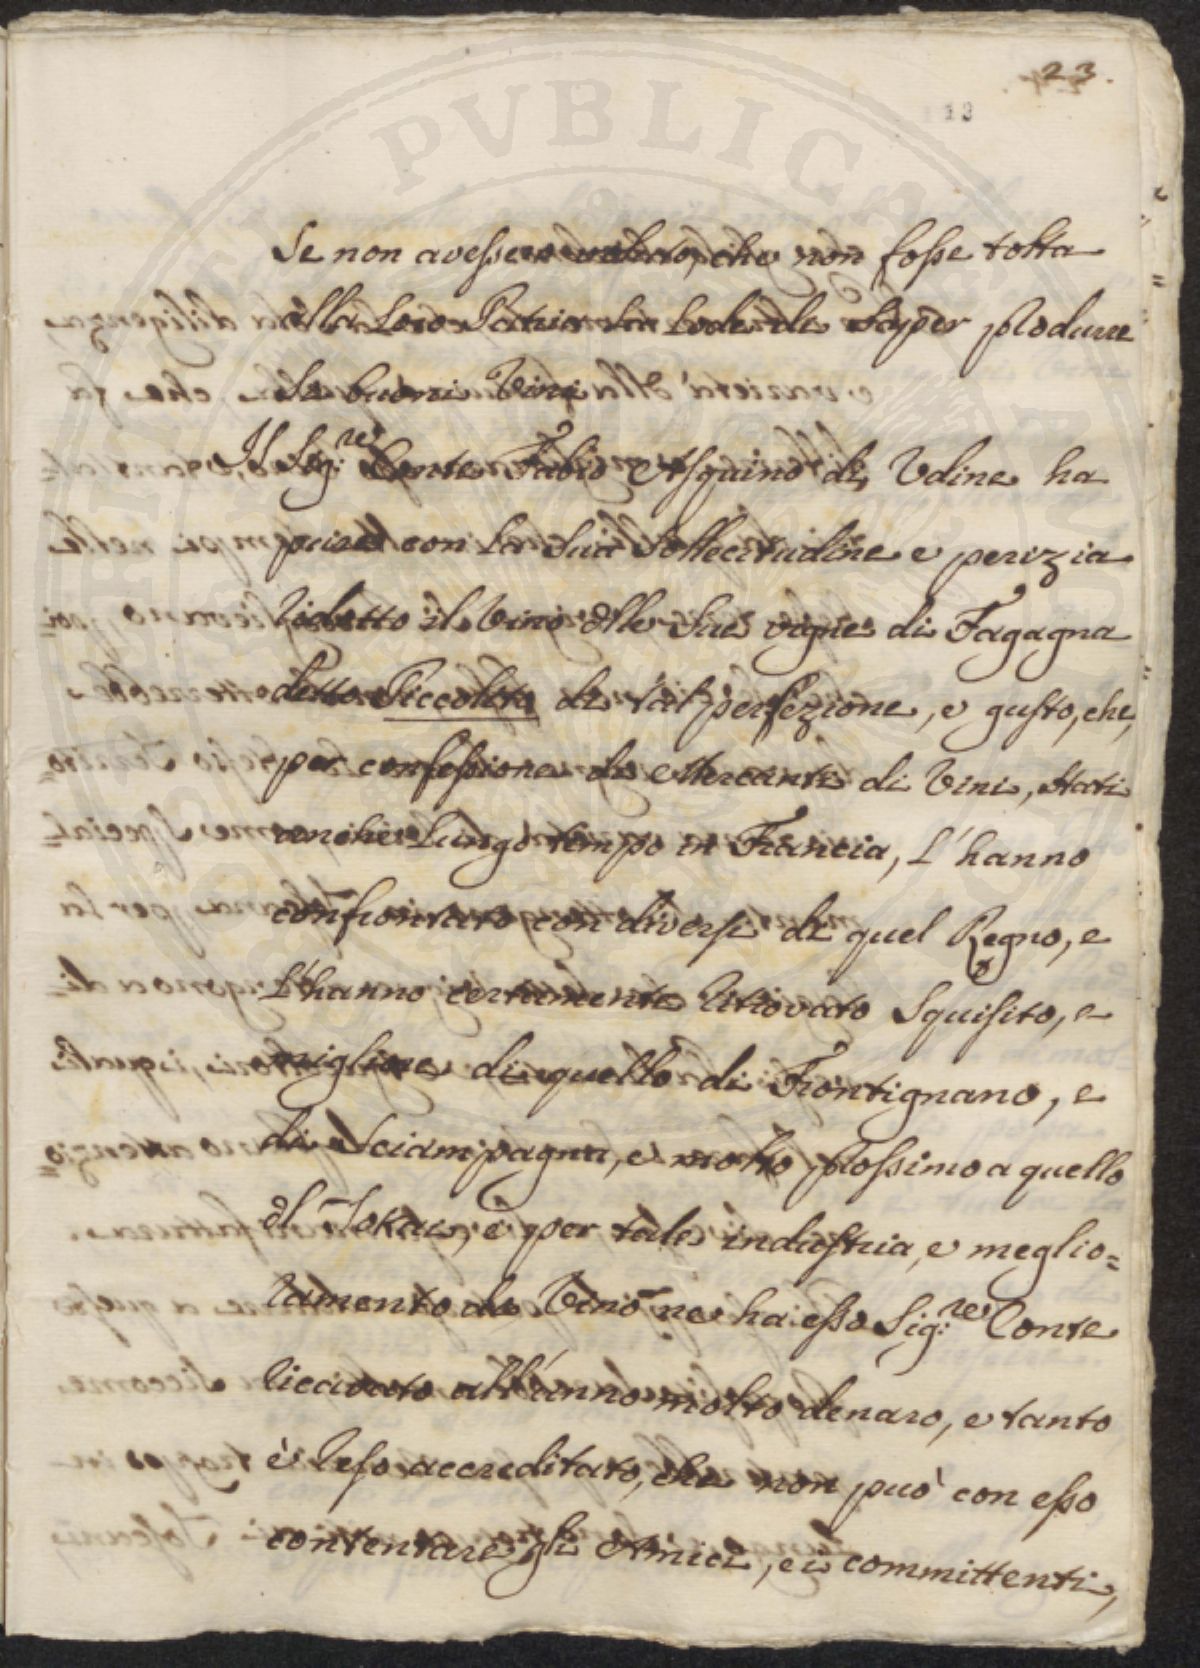 23.
13
Se non avessero veduto, che non fosse tolta
alla Loro Patria La Lode di Saper produrre
Li buoni Vini
Il Sig:re Conte Fabio Asquino di Udine ha
pure con La Sua Sollecitudine e perizia
ridotto il Vino dlle Sue vigne di Fagagna
detto Piccolito di tal perfezione, e gusto, che,
per confessione de Mercanti di Vini, stati
anche Lungo tempo in Francia, L'hanno
confrontato con diversi di quel Regno, e
L'hanno certamente ritrovato Squisito, e
migliore di quello di Frontignano, e
di Sciampagna, e molto prossimo a quello
dl Tokai, e per tale industria, e meglio=
ramento de Vino ne ha esso Sig:re Conte
riccavato all'anno molto denaro, e tanto
è reso accreditato, che non può con esso
contentare gli Amici, e i committenti,